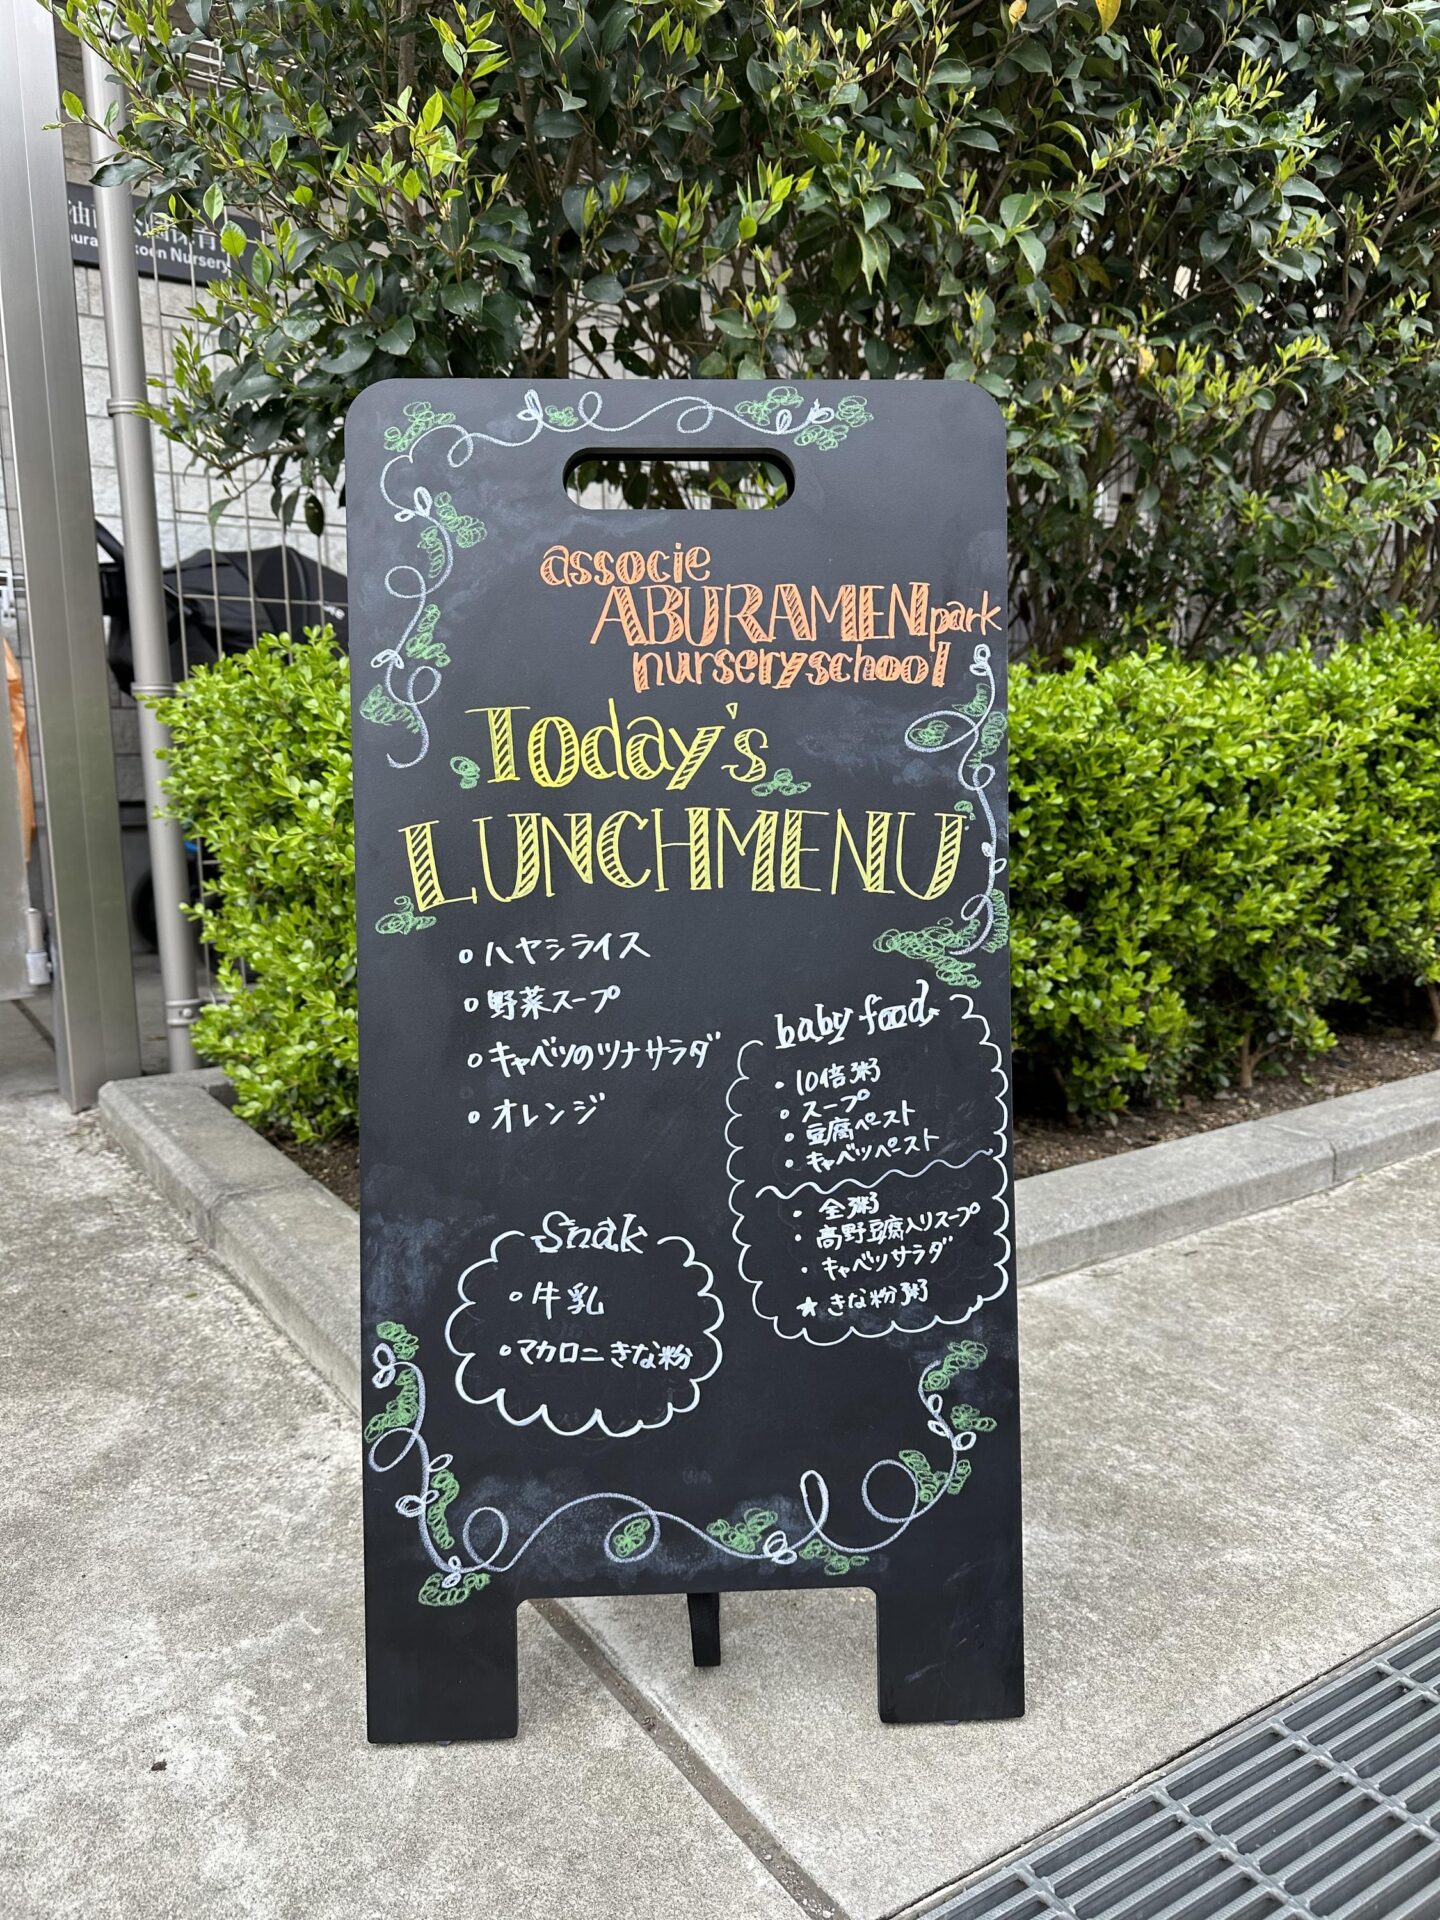 Nursery
associe
ABURAMEN park
nursery school
Today's
LUNCHMENU
ハヤシライス
野菜スープ
キャベツのツナサラダ
オレンジ
baby food
・10倍粥
・スープ
・豆腐ペースト
・キャベツペースト
・全粥
・高野豆腐入りスープ
・キャベツサラダ
★きな粉粥
Snak
牛乳
マカロニきな粉